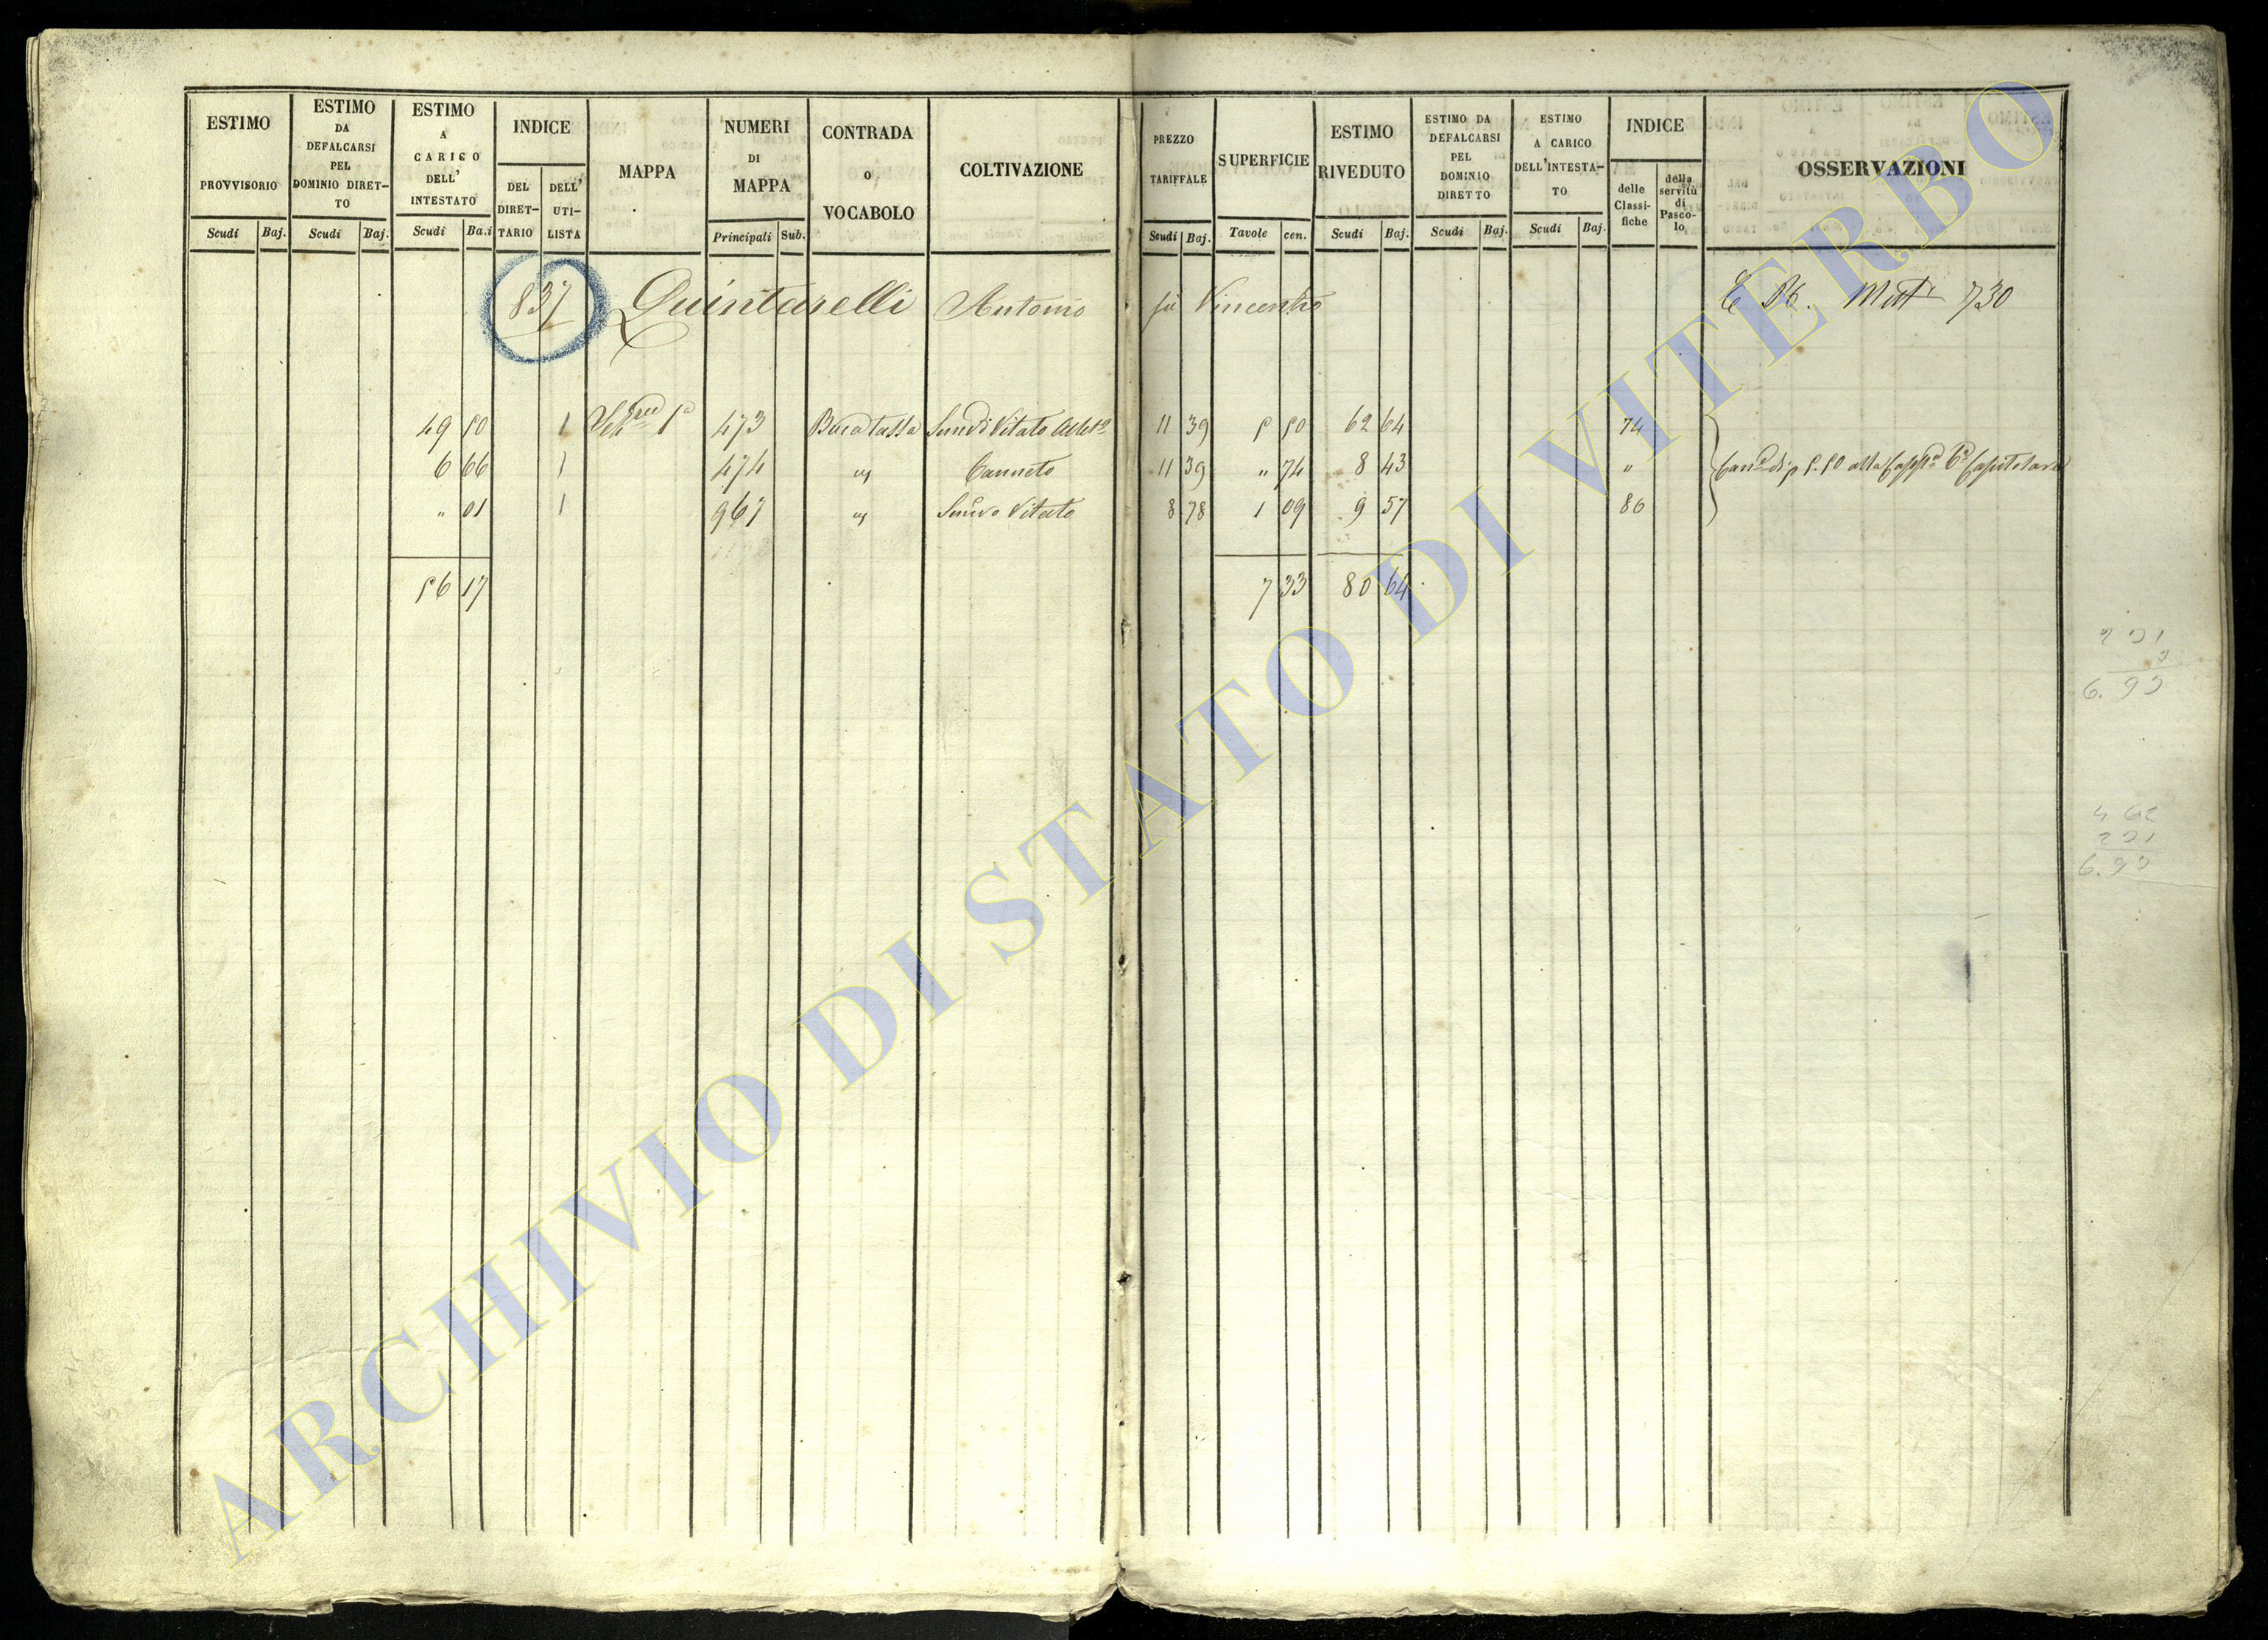 ESTIMO PROVVISORIO Scudi Baj.
ESTIMO DA DEFALCARSI PEL DOMINIO DIRETTO Scudi Baj.
ESTIMO A CARICO DELL' INTESTATO Scudi Ba.i
INDICE DEL DIRETTARIO DELL' UTILISTA
MAPPA
NUMERI DI MAPPA Principali Sub.
CONTRADA o VOCABOLO
COLTIVAZIONE
PREZZO TARIFFALE Scudi Baj.
SUPERFICIE Tavole cen.
ESTIMO RIVEDUTO Scudi Baj.
ESTIMO DA DEFALCARSI PEL DOMINIO DIRETTO Scudi Baj.
ESTIMO A CARICO DELL'INTESTATO Scudi Baj.
INDICE delle Classifiche della servitù di Pascolo
OSSERVAZIONI
837 Quintarelli Antonio fu Vincenzo 730
49 50 1 1a 473 Bucatassa Vitato 11 39 5 50 62 64 74
6 66 1 474 " Canneto 11 39 " 74 8 43 "
" 01 1 967 " Semivo Vitato 8 78 1 09 9 57 86
56 17 7 33 80 64
6.93
6.93
ARCHIVIO DI STATO DI VITERBO